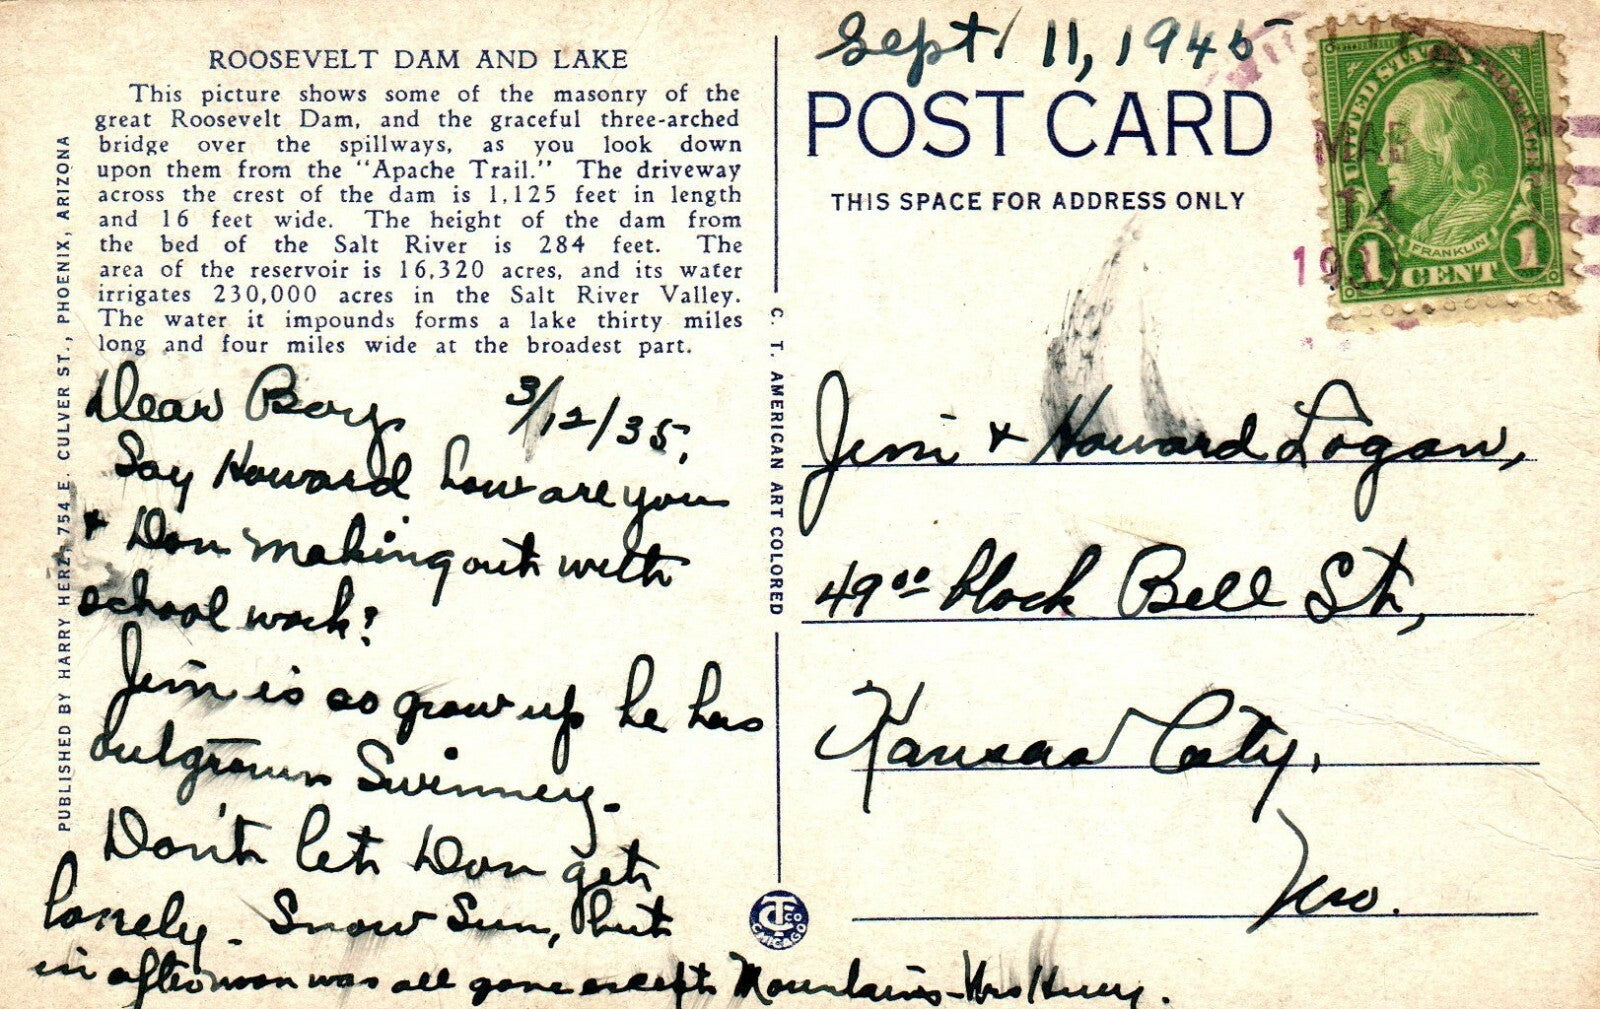 ROOSEVELT DAM AND LAKE
This picture shows some of the masonry of the
great Roosevelt Dam, and the graceful three-arched
bridge over the spillways, as you look down
upon them from the "Apache Trail." The driveway
across the crest of the dam is 1,125 feet in length
and 16 feet wide. The height of the dam from
the bed of the Salt River is 284 feet. The
area of the reservoir is 16,320 acres, and its water
irrigates 230,000 acres in the Salt River Valley.
The water it impounds forms a lake thirty miles
long and four miles wide at the broadest part.
PUBLISHED BY HARRY HERZ, 754 E. CULVER ST., PHOENIX, ARIZONA
Dear Boys 3/12/35,
Say Howard how are you
+ Don making out with
school work?
Jim is so grow up he has
outgrown Swinney.
Don't let Don get
lonely. Snow Sun, but
in afternoon was all gone except Mountains - Mrs
C. T. AMERICAN ART COLORED
CT CO CHICAGO
Sept. 11, 1945
POST CARD
THIS SPACE FOR ADDRESS ONLY
UNITED STATES POSTAGE
FRANKLIN
1 CENT 1
MAR
14
Jim + Howard Logan,
49⁰⁰ block Bell St,
Kansas City,
Mo.